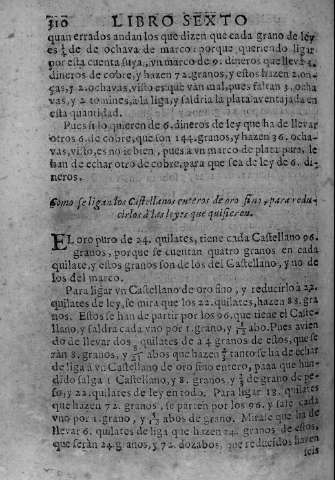 310 LIBRO SEXTO
quan errados andan los que dizen que cada grano de ley
es ¼ de de ochava de marco: porque queriendo ligar
por esta cuenta suya, vn marco de 9. dineros que lleva 3.
dineros de cobre, y hazen 72. granos, y estos hazen 2. on-
ças, y 2. ochavas, visto es que vàn mal, pues faltan 3. ocha
vas, y 2 tomines, a la liga, y saldria la plata aventajada en
esta quantidad.
Pues si lo quieren de 6. dineros de ley que ha de llevar
otros 6. de cobre, que son 144. granos, y hazen 36. ocha-
vas, visto, es no ir bien, pues a vn marco de plata pura, le
han de echar otro de cobre, para que sea de ley de 6. di-
neros.
Como se ligan los Castellanos enteros de oro fino, para redu-
cirlos à las leyes que quisieren.
EL oro puro de 24. quilates, tiene cada Castellano 96.
granos, porque se cuentan quatro granos en cada
quilate, y estos granos son de los del Castellano, y no de
los del marco.
Para ligar vn Castellano de oro fino, y reducirlo à 22.
quilates de ley, se mira que los 22. quilates, hazen 88. gra
nos. Estos se han de partir por los 96. que tiene el Caste-
llano, y saldrà cada vno por 1. grano, y 1/11 abo. Pues avien
do de llevar dos quilates de a 4 granos de estos, que se
ràn 8. granos, y 8/11 abos que hazen tanto se ha de echar
de liga à vn Castellano de oro fino entero, paaa que hun-
dido salga 1 Castellano, y 8. granos, y de grano de pe-
so, y 22. quilates de ley en todo. Para ligar 18. quilates
que hazen 72. granos, se parten por los 96. y sale cada
vno por 1. grano, y abos de grano. Mirase que ha de
llevar 6. quilates de liga que hazen 24. granos de estos,
que seràn 24 granos, y 72. dozabos, que reducidos hazen
seis